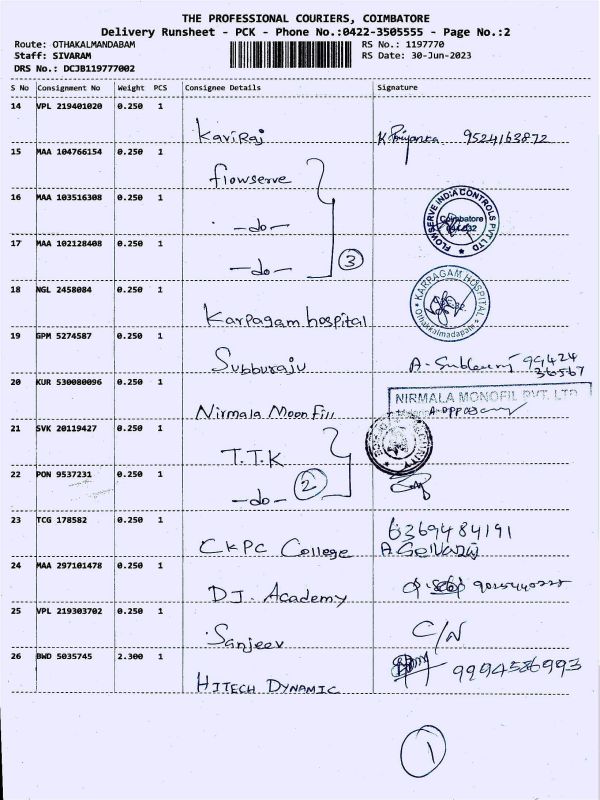 THE PROFESSIONAL COURIERS, COIMBATORE
Delivery Runsheet - PCK - Phone No.:0422-3505555 - Page No.:2
Route: OTHAKALMANDABAM RS No.: 1197770
Staff: SIVARAM RS Date: 30-Jun-2023
DRS No.: DCJB119777002
S No Consignment No Weight PCS Consignee Details Signature
14 VPL 219401020 0.250 1
KaviRaj K Priyanka 9524163872
15 MAA 104766154 0.250 1
flowserve
16 MAA 103516308 0.250 1
-do-
FLOWSERVE INDIA CONTROLS PVT LTD
Coimbatore
17 MAA 102128408 0.250 1
-do- 3
18 NGL 2458084 0.250 1
Karpagam hospital
KARPAGAM HOSPITAL
Othakkalmadapam
19 GPM 5274587 0.250 1
Subburaju 99424
36567
20 KUR 530080096 0.250 1
Nirmala Monofill
NIRMALA MONOFIL PVT. LTD
21 SVK 20119427 0.250 1
T.T.K
22 PON 9537231 0.250 1
-do- 2
23 TCG 178582 0.250 1
6369484191
CKPC College
24 MAA 297101478 0.250 1
DJ. Academy
25 VPL 219303702 0.250 1
Sanjeev C/N
26 BWD 5035745 2.300 1
HITECH DYNAMIC 9994586993
1